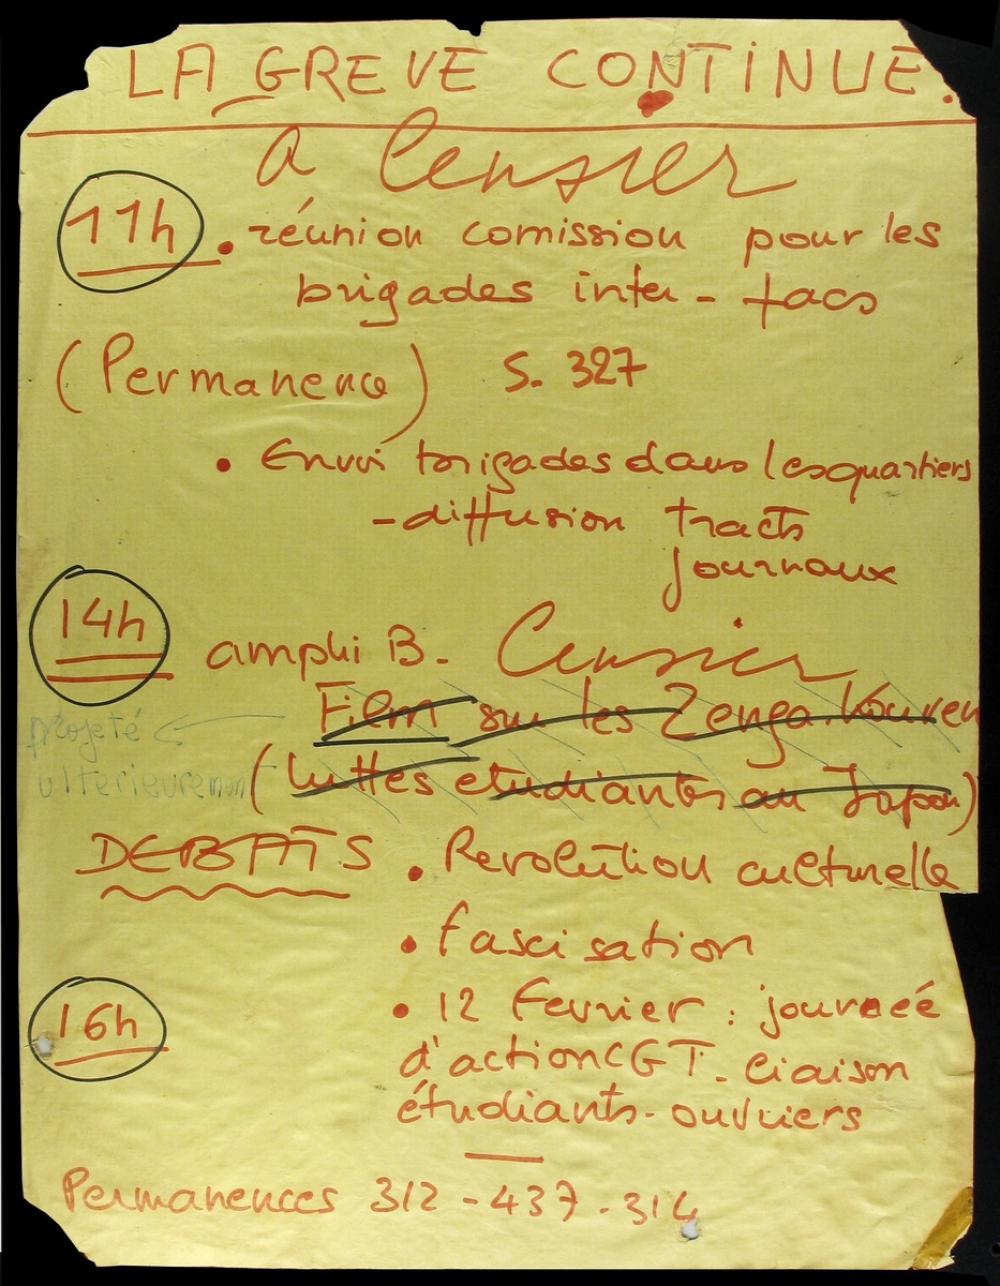 LA GREVE CONTINUE.
a Censier
11h . réunion comission pour les
brigades inter - facs
(Permanence) S. 327
• Envoi brigades dans les quartiers
- diffusion tracts
journaux
14h amphi B. Censier
Film sur les Zengakouren
projeté
ultérieurement (luttes etudiantes au Japon)
DEBATS . Revolution culturelle
• fascisation
16h • 12 Fevrier : journeé
d'action CGT. liaison
étudiants - ouvriers
Permanences 312 - 437 - 314